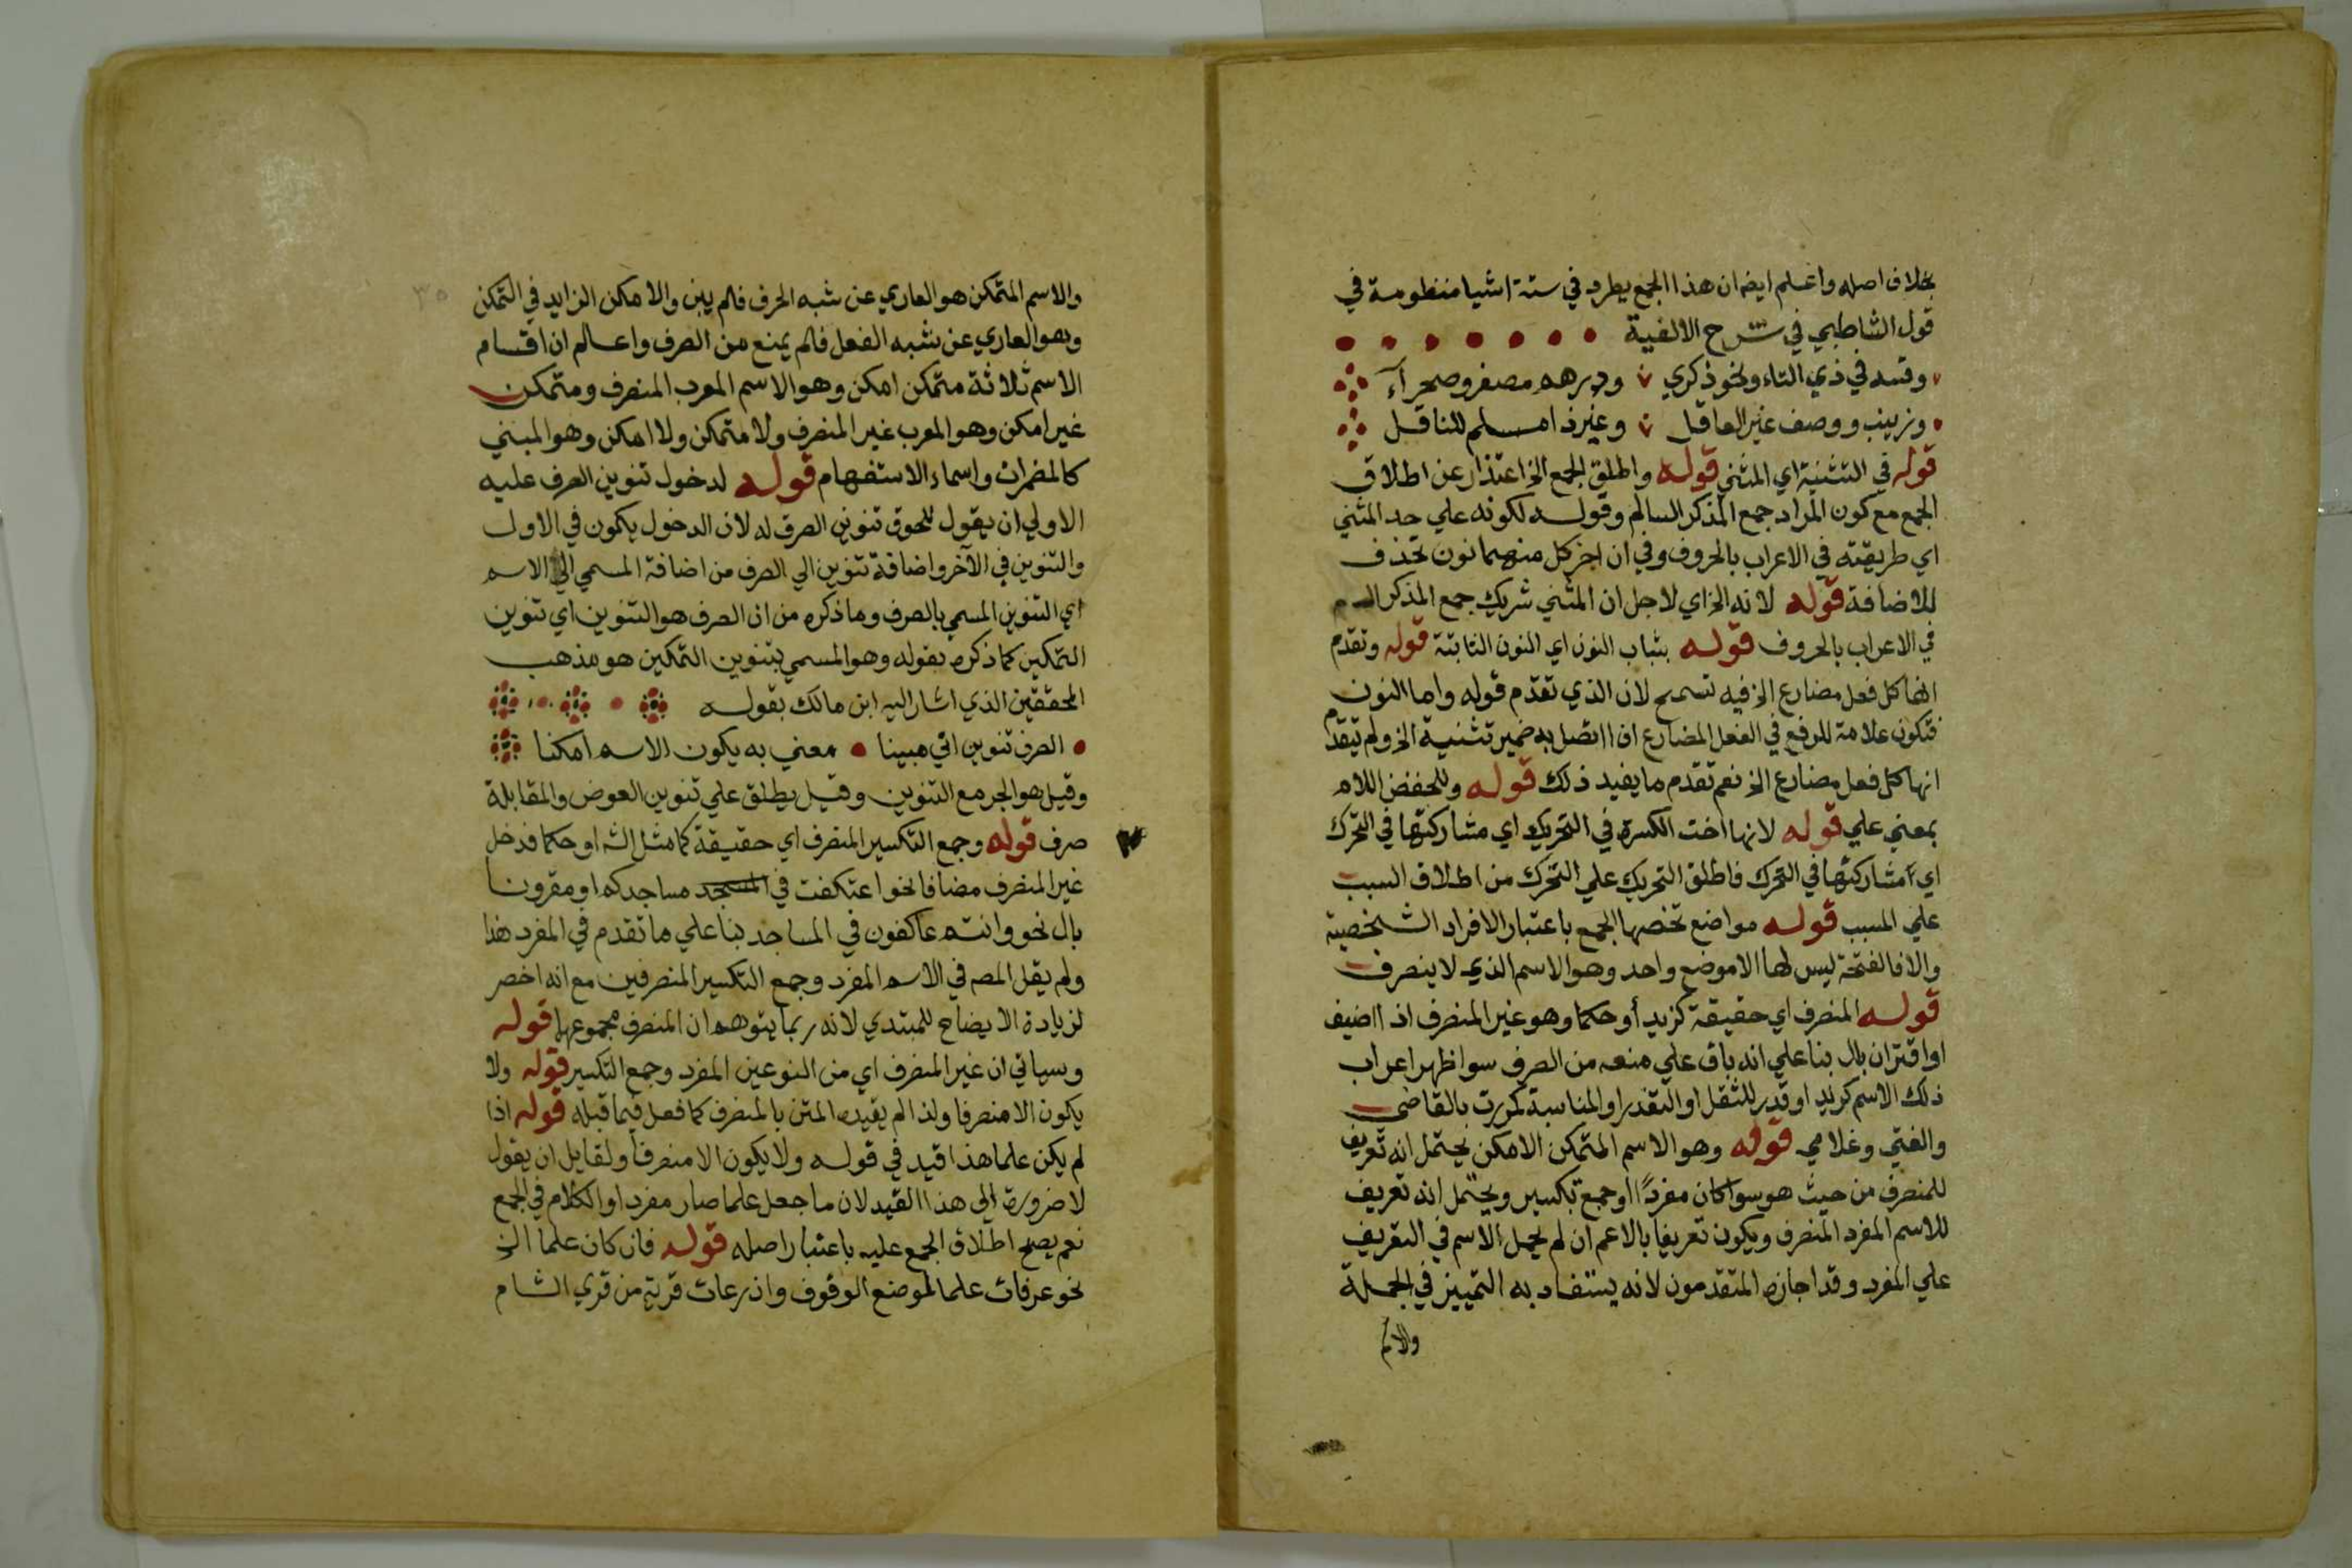 بخلاف اصله واعلم ايض ان هذا الجمع يطرد في ستة اشيا منظومة في
قول الشاطبي في شرح الالفية
وقسه في ذي التاء ونحو ذكري ودرهم مصغر وصحرآء
وزينب ووصف غير العاقل وغير ذا مسلم للناقل
قوله في التثنية اي المثني قوله واطلق الجمع الخ اعتذار عن اطلاق
الجمع مع كون المراد جمع المذكر السالم وقوله لكونه علي حد المثني
اي طريقته في الاعراب بالحروف وفي ان اخر كل منهما نون تحذف
للاضافة قوله لانه الخ اي لاجل ان المثني شريك جمع المذكر السم
في الاعراب بالحروف قوله بثبات النون اي النون الثابتة قوله وتقدم
انها كل فعل مضارع الخ فيه تسمح لان الذي تقدم قوله واما النون
فتكون علامة للرفع في الفعل المضارع اذا اتصل به ضمير تثنية الخ ولم يتقدم
انها كل فعل مضارع الخ نعم تقدم ما يفيد ذلك قوله وللخفض اللام
بمعني علي قوله لانها اخت الكسرة في التحريك اي مشاركتها في التحرك
اي مشاركتها في التحرك فاطلق التحريك علي التحرك من اطلاق السبب
علي المسبب قوله مواضع تخصها الجمع باعتبار الافراد الشخصية
والا فالفتحة ليس لها الا موضع واحد وهو الاسم الذي لا ينصرف
قوله المنصرف اي حقيقة كزيد أو حكما وهو غير المنصرف اذا اضيف
او اقترن بال بنا علي انه باق علي منعه من الصرف سوا ظهر اعراب
ذلك الاسم كزيد او قدر للثقل او التعذر او المناسبة كمررت بالقاضي
والفتي وغلامي قوله وهو الاسم المتمكن الامكن يحتمل انه تعريف
للمنصرف من حيث هو سوا كان مفردًا او جمع تكسير ويحتمل انه تعريف
للاسم المفرد المنصرف ويكون تعريفا بالاعم ان لم يحمل الاسم في التعريف
علي المفرد وقد اجازه المتقدمون لانه يستفاد به التمييز في الجملة
والاسم
والاسم المتمكن هو العاري عن شبه الحرف فلم يبن والامكن الزايد في التمكن
وهو العاري عن شبه الفعل فلم يمنع من الصرف واعلم ان اقسام
الاسم ثلاثة متمكن امكن وهو الاسم المعرب المنصرف ومتمكن
غير امكن وهو المعرب غير المنصرف ولا متمكن ولا امكن وهو المبني
كالمضمرات واسماء الاستفهام قوله لدخول تنوين الصرف عليه
الاولي ان يقول للحوق تنوين الصرف له لان الدخول يكون في الاول
والتنوين في الآخر واضافة تنوين الي الصرف من اضافة المسمي الي الاسم
اي التنوين المسمي بالصرف وما ذكره من ان الصرف هو التنوين اي تنوين
التمكين كما ذكره بقوله وهو المسمي بتنوين التمكين هو مذهب
المحققين الذي اشار اليه ابن مالك بقوله
الصرف تنوين اتي مبينا معني به يكون الاسم امكنا
وقيل هو الجر مع التنوين وقيل يطلق علي تنوين العوض والمقابلة
صرف قوله وجمع التكسير المنصرف اي حقيقة كما مثل الش او حكما فدخل
غير المنصرف مضافا نحو اعتكفت في المسجد مساجدكم او مقرونا
بال نحو وانتم عاكفون في المساجد بنا علي ما تقدم في المفرد هذا
ولم يقل المص في الاسم المفرد وجمع التكسير المنصرفين مع انه اخصر
لزيادة الايضاح للمبتدي لانه ربما يتوهم ان المنصرف مجموعها قوله
وسياتي ان غير المنصرف اي من النوعين المفرد وجمع التكسير قوله ولا
يكون الا منصرفا ولذا لم يقيده المتن بالمنصرف كما فعل فيما قبله قوله اذا
لم يكن علما هذا قيد في قوله ولا يكون الا منصرفا ولقايل ان يقول
لا ضرورة الي هذا القيد لان ما جعل علما صار مفردا والكلام في الجمع
نعم يصح اطلاق الجمع عليه باعتبار اصله قوله فان كان علما الخ
نحو عرفات علما لموضع الوقوف واذرعات قرية من قري الشام